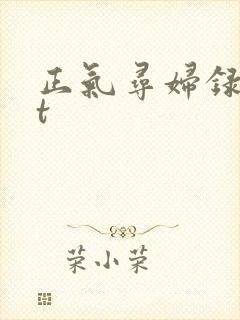 正氣尋婦録
t
荣小荣